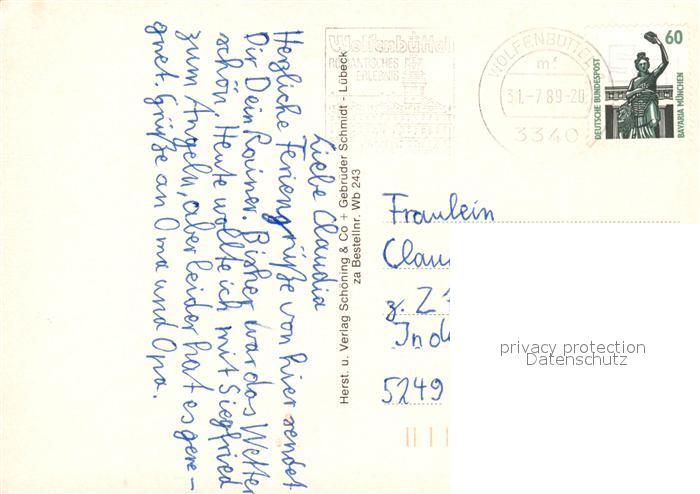 Liebe Claudia
Herzliche Feriengrüße von hier sendet
Dir Dein Rainer. Bisher war das Wetter
schön. Heute wollte ich mit Siegfried
zum Angeln, aber leider hat es gere-
gnet. Grüße an Oma und Opa.
Herst. u. Verlag Schöning & Co + Gebrüder Schmidt - Lübeck
za Bestellnr. Wb 243
Wolfenbüttel
ROMANTISCHES
ERLEBNIS
WOLFENBÜTTEL
mf
31.-7.89-20
3340
60
DEUTSCHE BUNDESPOST
BAVARIA MÜNCHEN
Fräulein
Clau
z. Z
Ind
5249
privacy protection
Datenschutz